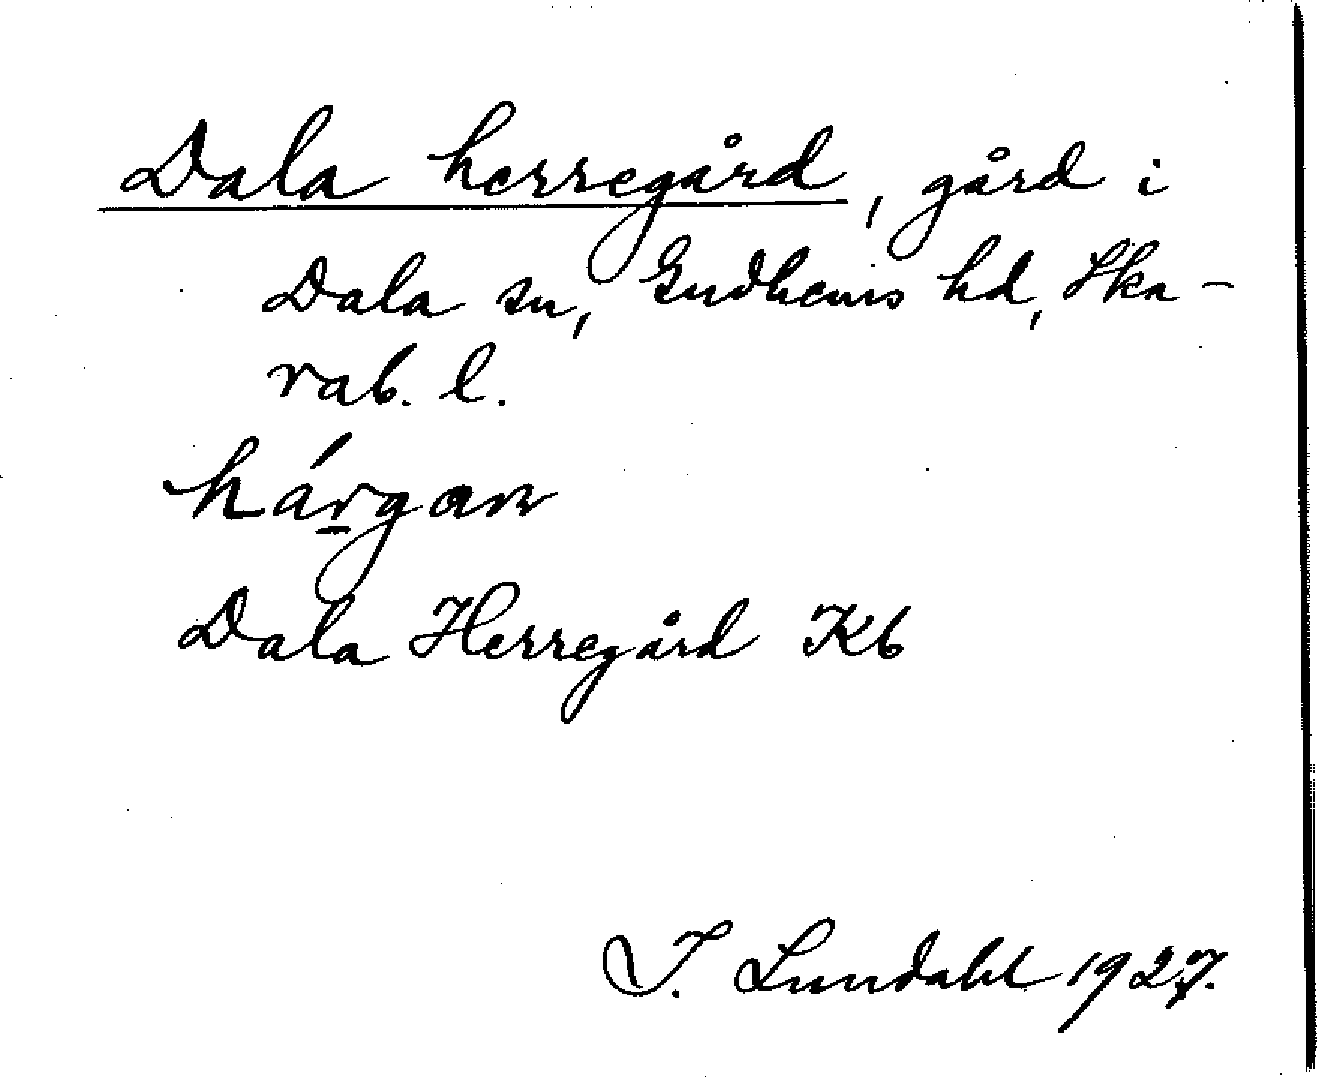 Dala herregård, gård i
Dala sn, Gudhems hd, Ska-
rab. l.
hárgan
Dala Herregård Kb
I. Lundahl 1927.